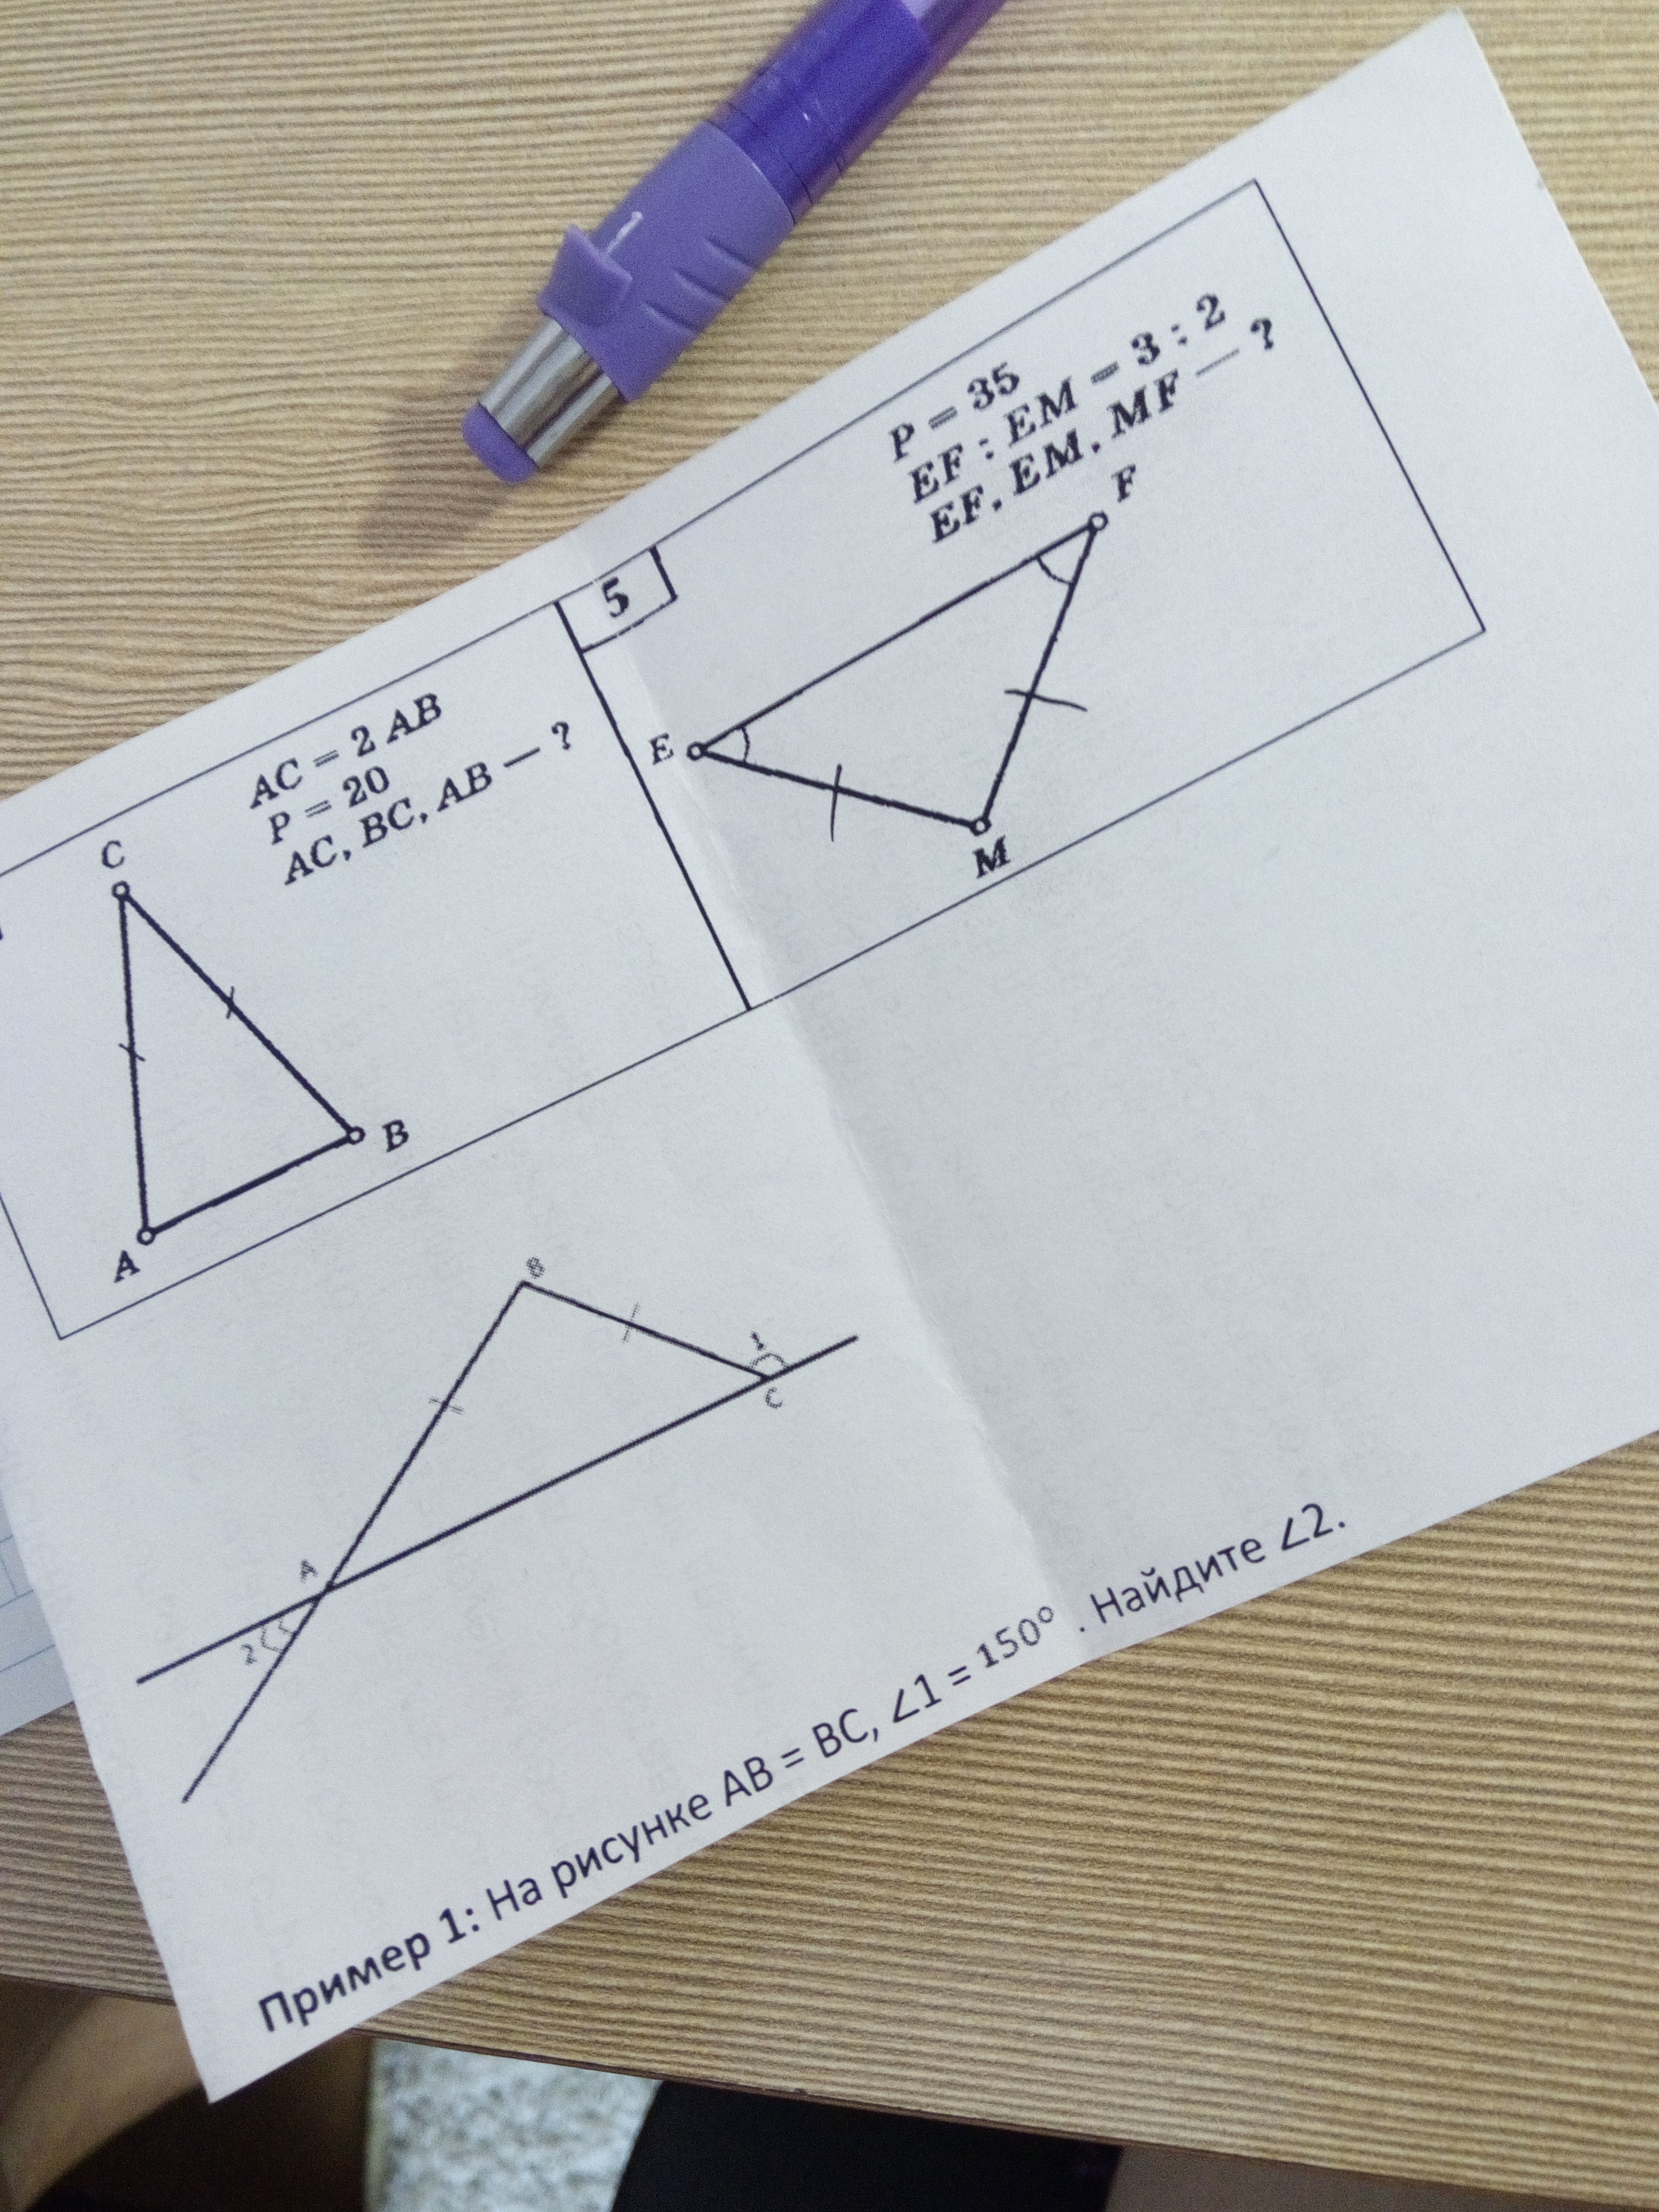 AC = 2 AB
P = 20
AC, BC, AB — ?
C
B
A
5
P = 35
EF : EM = 3 : 2
EF, EM, MF — ?
F
E
M
B
1
C
A
2
Пример 1: На рисунке AB = BC, ∠1 = 150° . Найдите ∠2.